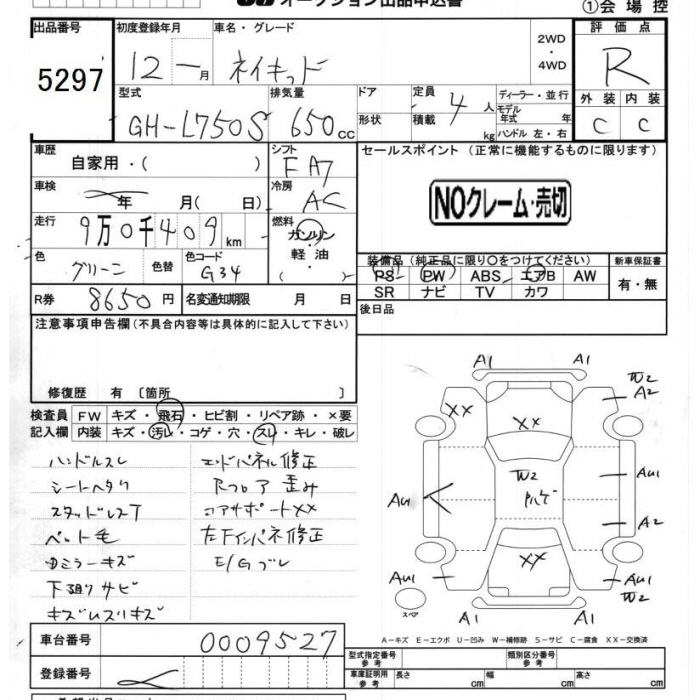 オークション出品申込書
①会場控
出品番号 初度登録年月 車名・グレード 評価点
5297 12 年 月 ネイキッド 2WD・4WD R
型式 排気量 ドア 定員 ディーラー・並行 外装 内装
GH-L750S 650 cc 形状 積載 4人 kg モデル年式 年 ハンドル 左・右 C C
車歴 シフト セールスポイント (正常に機能するものに限ります)
自家用・( ) FA7
車検 冷房 NOクレーム・売切
年 月( 日) AC
走行 燃料
9万0千409 km ガソリン・軽油・( )
色 色替 色コード 装備品 (純正品に限り○をつけてください) 新車保証書
グリーン G34 PS PW ABS エアB AW 有・無
SR ナビ TV カワ
R券 8650円 名変通知期限 月 日 後日品
注意事項申告欄 (不具合内容等は具体的に記入して下さい)
修復歴 有 [箇所 ]
検査員記入欄 FW キズ・飛石・ヒビ割・リペア跡・×要
内装 キズ・汚レ・コゲ・穴・スレ・キレ・破レ
ハンドルスレ エンドパネル修正
シートヘタリ Rフロア歪み
スタッドレスT コアサポートXX
ペット毛 左下インパネ修正
ミラーキズ E/Gブレ
下廻りサビ
A1 A1
W2
A2
XX XX
W2
AU1 AU1
A2
XX
AU1 AU1
W2
A1 A1
スペア
A−キズ E−エクボ U−凹み W−補修跡 S−サビ C−腐食 XX−交換済
車台番号 0009527
登録番号
型式指定番号 参考 類別区分番号 参考
車庫証明用 参考 長さ cm 幅 cm 高さ cm